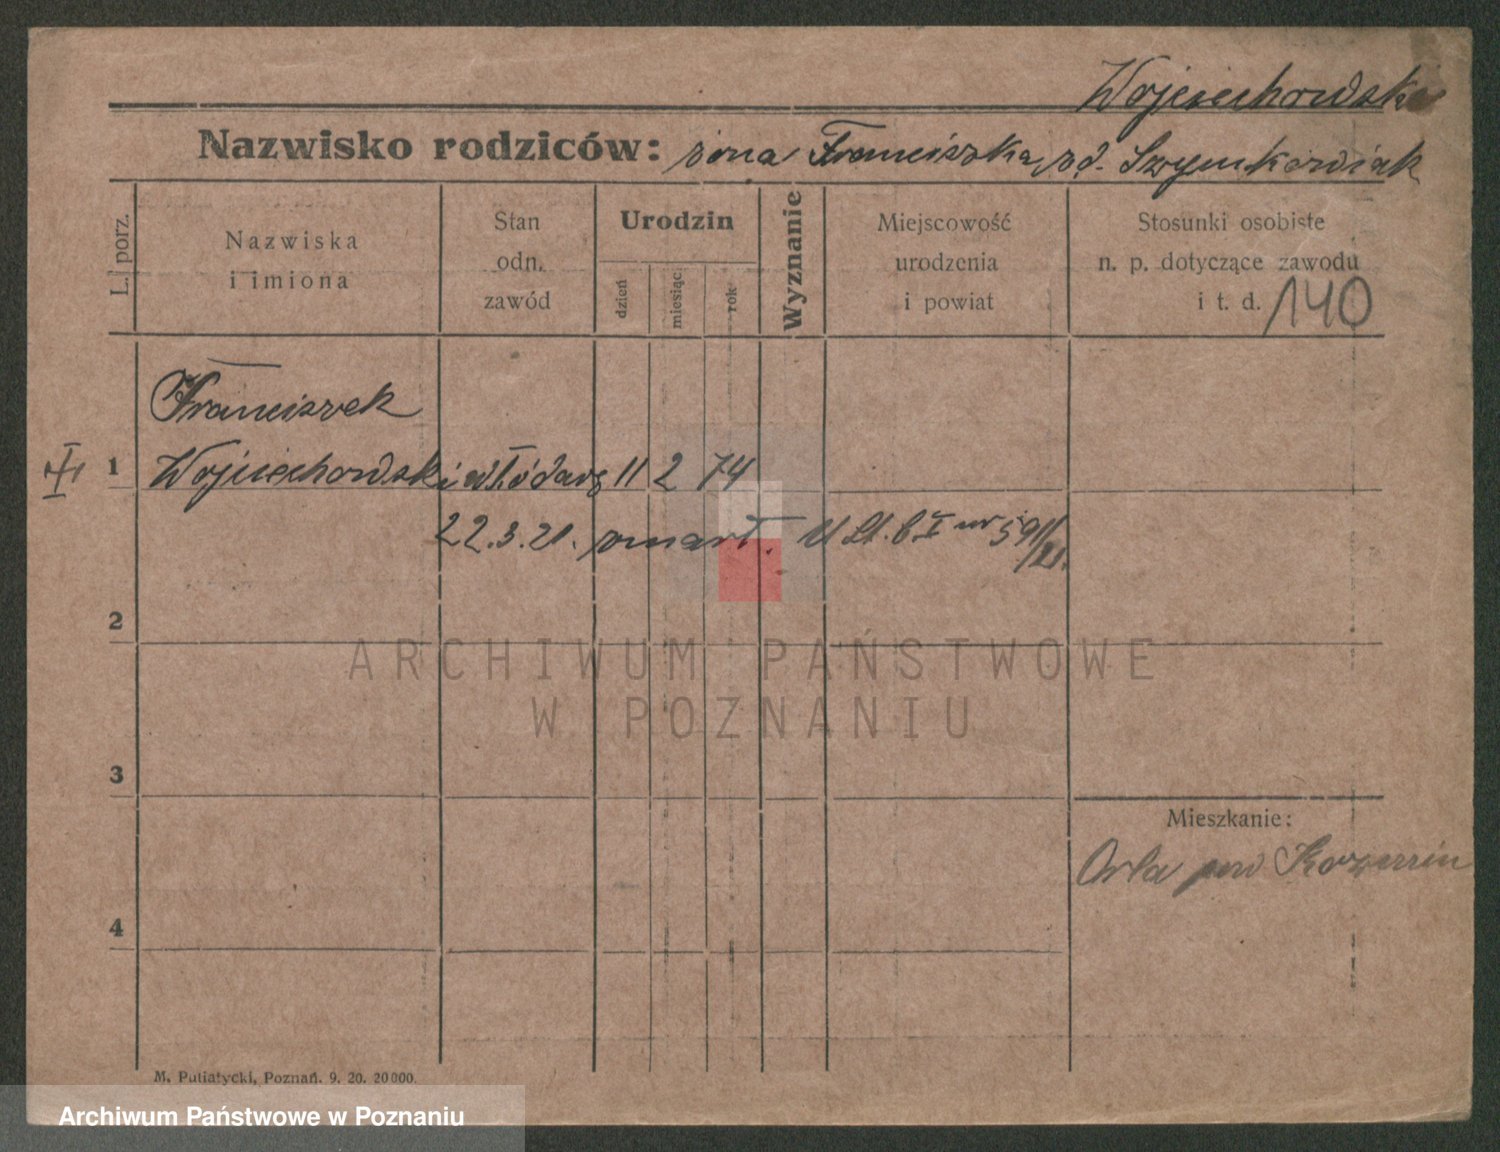 Wojciechowski
Nazwisko rodziców: żona Franciszka, żd. Szymkowiak
L. porz.
Nazwiska
i imiona
Stan
odn.
zawód
Urodzin
dzień
miesiąc
rok
Wyznanie
Miejscowość
urodzenia
i powiat
Stosunki osobiste
n. p. dotyczące zawodu
i t. d. 140
Franciszek
1 Wojciechowski włódarz 11 2 74
22.3.21. zmarł. U St. b I nr 591/21.
2
ARCHIWUM PAŃSTWOWE
W POZNANIU
3
Mieszkanie:
Orla pow
4
M. Putiatycki, Poznań. 9. 20. 20000.
Archiwum Państwowe w Poznaniu